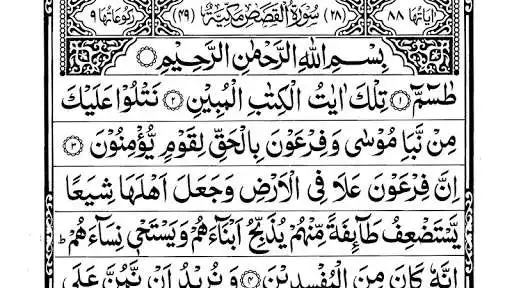 اٰیاتها ۸۸ (۲۸) سُوْرَةُ الْقَصَصِ مَكِّیَّةٌ (۴۹) رکوعاتها ۹
بِسْمِ اللّٰهِ الرَّحْمٰنِ الرَّحِیْمِ
طٰسٓمّٓ ۱ تِلْكَ اٰیٰتُ الْكِتٰبِ الْمُبِیْنِ ۲ نَتْلُوْا عَلَیْكَ
مِنْ نَّبَاِ مُوْسٰی وَ فِرْعَوْنَ بِالْحَقِّ لِقَوْمٍ یُّؤْمِنُوْنَ ۳
اِنَّ فِرْعَوْنَ عَلَا فِی الْاَرْضِ وَ جَعَلَ اَهْلَهَا شِیَعًا
یَّسْتَضْعِفُ طَآىِٕفَةً مِّنْهُمْ یُذَبِّحُ اَبْنَآءَهُمْ وَ یَسْتَحْیٖ نِسَآءَهُمْ ؕ
اِنَّهٗ كَانَ مِنَ الْمُفْسِدِیْنَ ۴ وَ نُرِیْدُ اَنْ نَّمُنَّ عَلَی